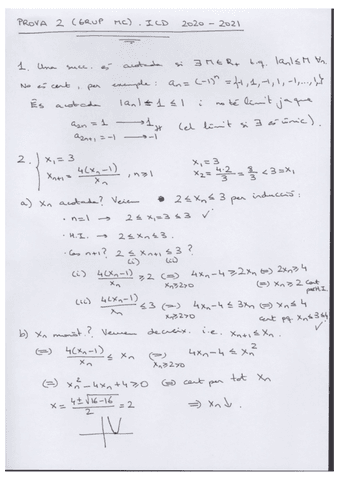 PROVA 2 (GRUP MC). ICD 2020-2021
1. Una succ. és acotada si ∃ M ∈ R+ t.q. |an| ≤ M ∀n.
No és cert, per exemple: an = (-1)^n = {1, -1, 1, -1, ..., 1}
És acotada |an| ≤ 1 ≤ 1 i no té límit ja que
a2n = 1 → 1
a2n+1 = -1 → -1 (el límit si ∃ és únic).
2. { x1 = 3 x1 = 3
xn+1 = 4(xn-1)/xn , n ≥ 1 x2 = 4·2/3 = 8/3 < 3 = x1
a) xn acotada? Veiem 2 ≤ xn ≤ 3 per inducció:
· n=1 → 2 ≤ x1 = 3 ≤ 3 ✓
· H.I. → 2 ≤ xn ≤ 3.
· Cas n+1? 2 ≤ xn+1 ≤ 3 ?
(i) (ii)
(i) 4(xn-1)/xn ≥ 2 (⇔) xn≥2>0 4xn-4 ≥ 2xn ⇔ 2xn ≥ 4
⇔ xn ≥ 2 cert per H.I.
(ii) 4(xn-1)/xn ≤ 3 (⇔) xn≥2>0 4xn-4 ≤ 3xn ⇔ xn ≤ 4
cert pq xn ≤ 3 ≤ 4 ✓
b) xn monòt? Veiem decreix. i.e. xn+1 ≤ xn.
(⇔) 4(xn-1)/xn ≤ xn (⇔) xn≥2>0 4xn-4 ≤ xn²
(⇔) xn² - 4xn + 4 ≥ 0 (⇔) cert per tot xn
x = 4 ± √16-16 / 2 = 2 ⇒ xn ↓.